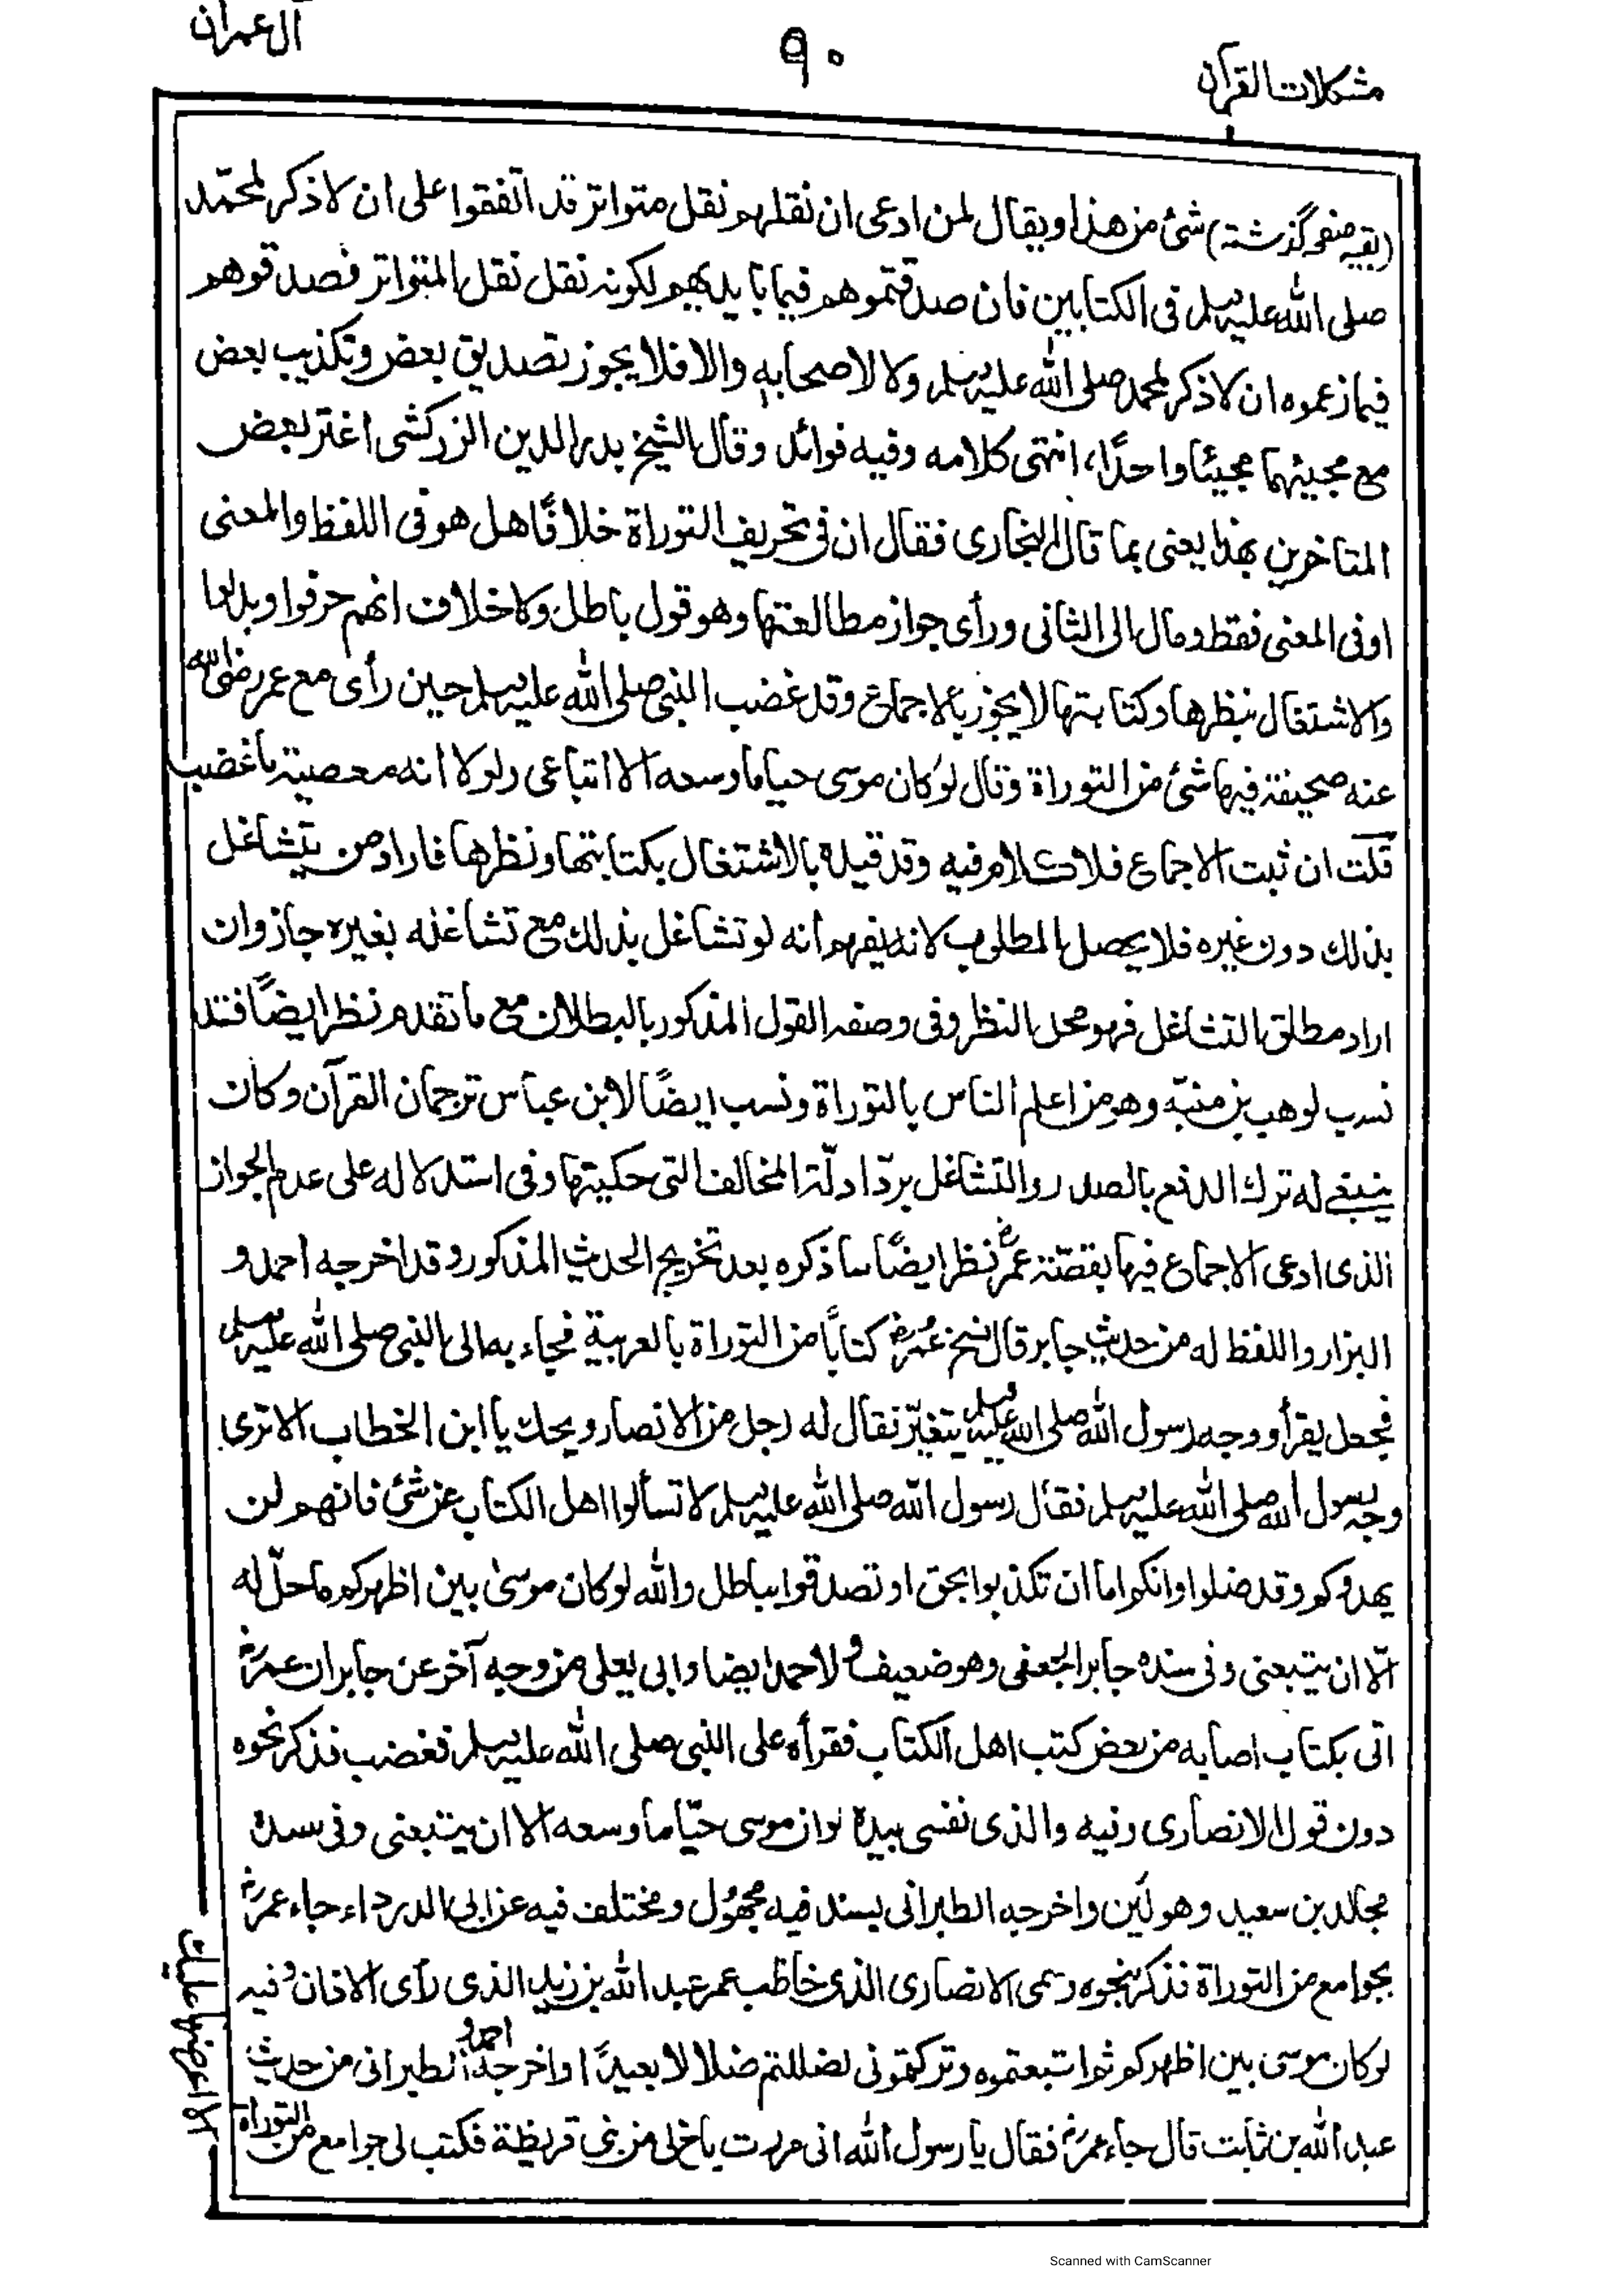 مشكلات القرآن
٩٠
آل عمران
(بقيه صفحه گذشته) شئ من هذا ويقال لمن ادعى ان نقلهم نقل متواتر قد اتفقوا على ان لا ذكر لمحمّد
صلى الله عليه وسلم فى الكتابين فان صدقتموهم فيما بايديهم لكونه نقل نقل المتواتر فصدقوهم
فيما زعموه ان لا ذكر لمحمد صلى الله عليه وسلم ولا لاصحابه والا فلا يجوز تصديق بعض وتكذيب بعض
مع مجيئهما مجيئا واحدًا، انتهى كلامه وفيه فوائد وقال الشيخ بدر الدين الزركشى اغتر بعض
المتاخرين بهذا يعنى بما قال البخارى فقال ان فى تحريف التوراة خلافًا هل هو فى اللفظ والمعنى
او فى المعنى فقط ومال الى الثانى ورأى جواز مطالعتها وهو قول باطل ولا خلاف انهم حرفوا وبدلوا
والاشتغال بنظرها وكتابتها لا يجوز بالاجماع وقد غضب النبى صلى الله عليه وسلم حين رأى مع عمر رضى الله
عنه صحيفة فيها شئ من التوراة وقال لو كان موسى حيا ما وسعه الا اتباعى ولولا انه معصية ما غضب
قلت ان ثبت الاجماع فلا كلام فيه وقد قيده بالاشتغال بكتابتها ونظرها فاراد من يتشاغل
بذلك دون غيره فلا يحصل المطلوب لانه يفهم انه لو تشاغل بذلك مع تشاغله بغيره جاز وان
اراد مطلق التشاغل فهو محل النظر وفى وصفه القول المذكور بالبطلان مع ما تقدم نظر ايضًا فقد
نسب لوهب بن منبّه وهو من اعلم الناس بالتوراة ونسب ايضًا لابن عباس ترجمان القرآن وكان
ينبغى له ترك الدفع بالصدر والتشاغل بردّ ادلّة المخالف التى حكيتها وفى استدلاله على عدم الجواز
الذى ادعى الاجماع فيها بقصّة عمر رض نظر ايضًا ساذكره بعد تخريج الحديث المذكور وقد اخرجه احمد و
البزار واللفظ له من حديث جابر قال نسخ عمر رض كتابًا من التوراة بالعربية فجاء به الى النبى صلى الله عليه وسلم
فجعل يقرأ ووجه رسول الله صلى الله عليه وسلم يتغيّر فقال له رجل من الانصار ويحك يا ابن الخطاب الا ترى
وجه رسول الله صلى الله عليه وسلم فقال رسول الله صلى الله عليه وسلم لا تسألوا اهل الكتاب عن شئ فانهم لن
يهدوكم وقد ضلوا وانكم اما ان تكذبوا بحق او تصدقوا بباطل والله لو كان موسىٰ بين اظهركم ما حلّ له
الّا ان يتبعنى وفى سنده جابر الجعفى وهو ضعيف ولاحمد ايضا وابى يعلى من وجه آخر عن جابر ان عمر رض
اتى بكتاب اصابه من بعض كتب اهل الكتاب فقرأه على النبى صلى الله عليه وسلم فغضب فذكر نحوه
دون قول الانصارى وفيه والذى نفسى بيده لو ان موسى حيّا ما وسعه الا ان يتبعنى وفى سنده
مجالد بن سعيد وهو ليّن واخرجه الطبرانى بسند فيه مجهول ومختلف فيه عن ابى الدرداء جاء عمر رض
بجوامع من التوراة فذكر نحوه وسمى الانصارى الذى خاطب عمر عبد الله بن زيد الذى رأى الاذان وفيه
لو كان موسى بين اظهركم ثم اتبعتموه وتركتمونى لضللتم ضلالا بعيدًا واخرجه احمد و الطبرانى من حديث
عبد الله بن ثابت قال جاء عمر رض فقال يا رسول الله انى مررت باخ لى من بنى قريظة فكتب لى جوامع من التوراة
الا اعرضها عليك
Scanned with CamScanner